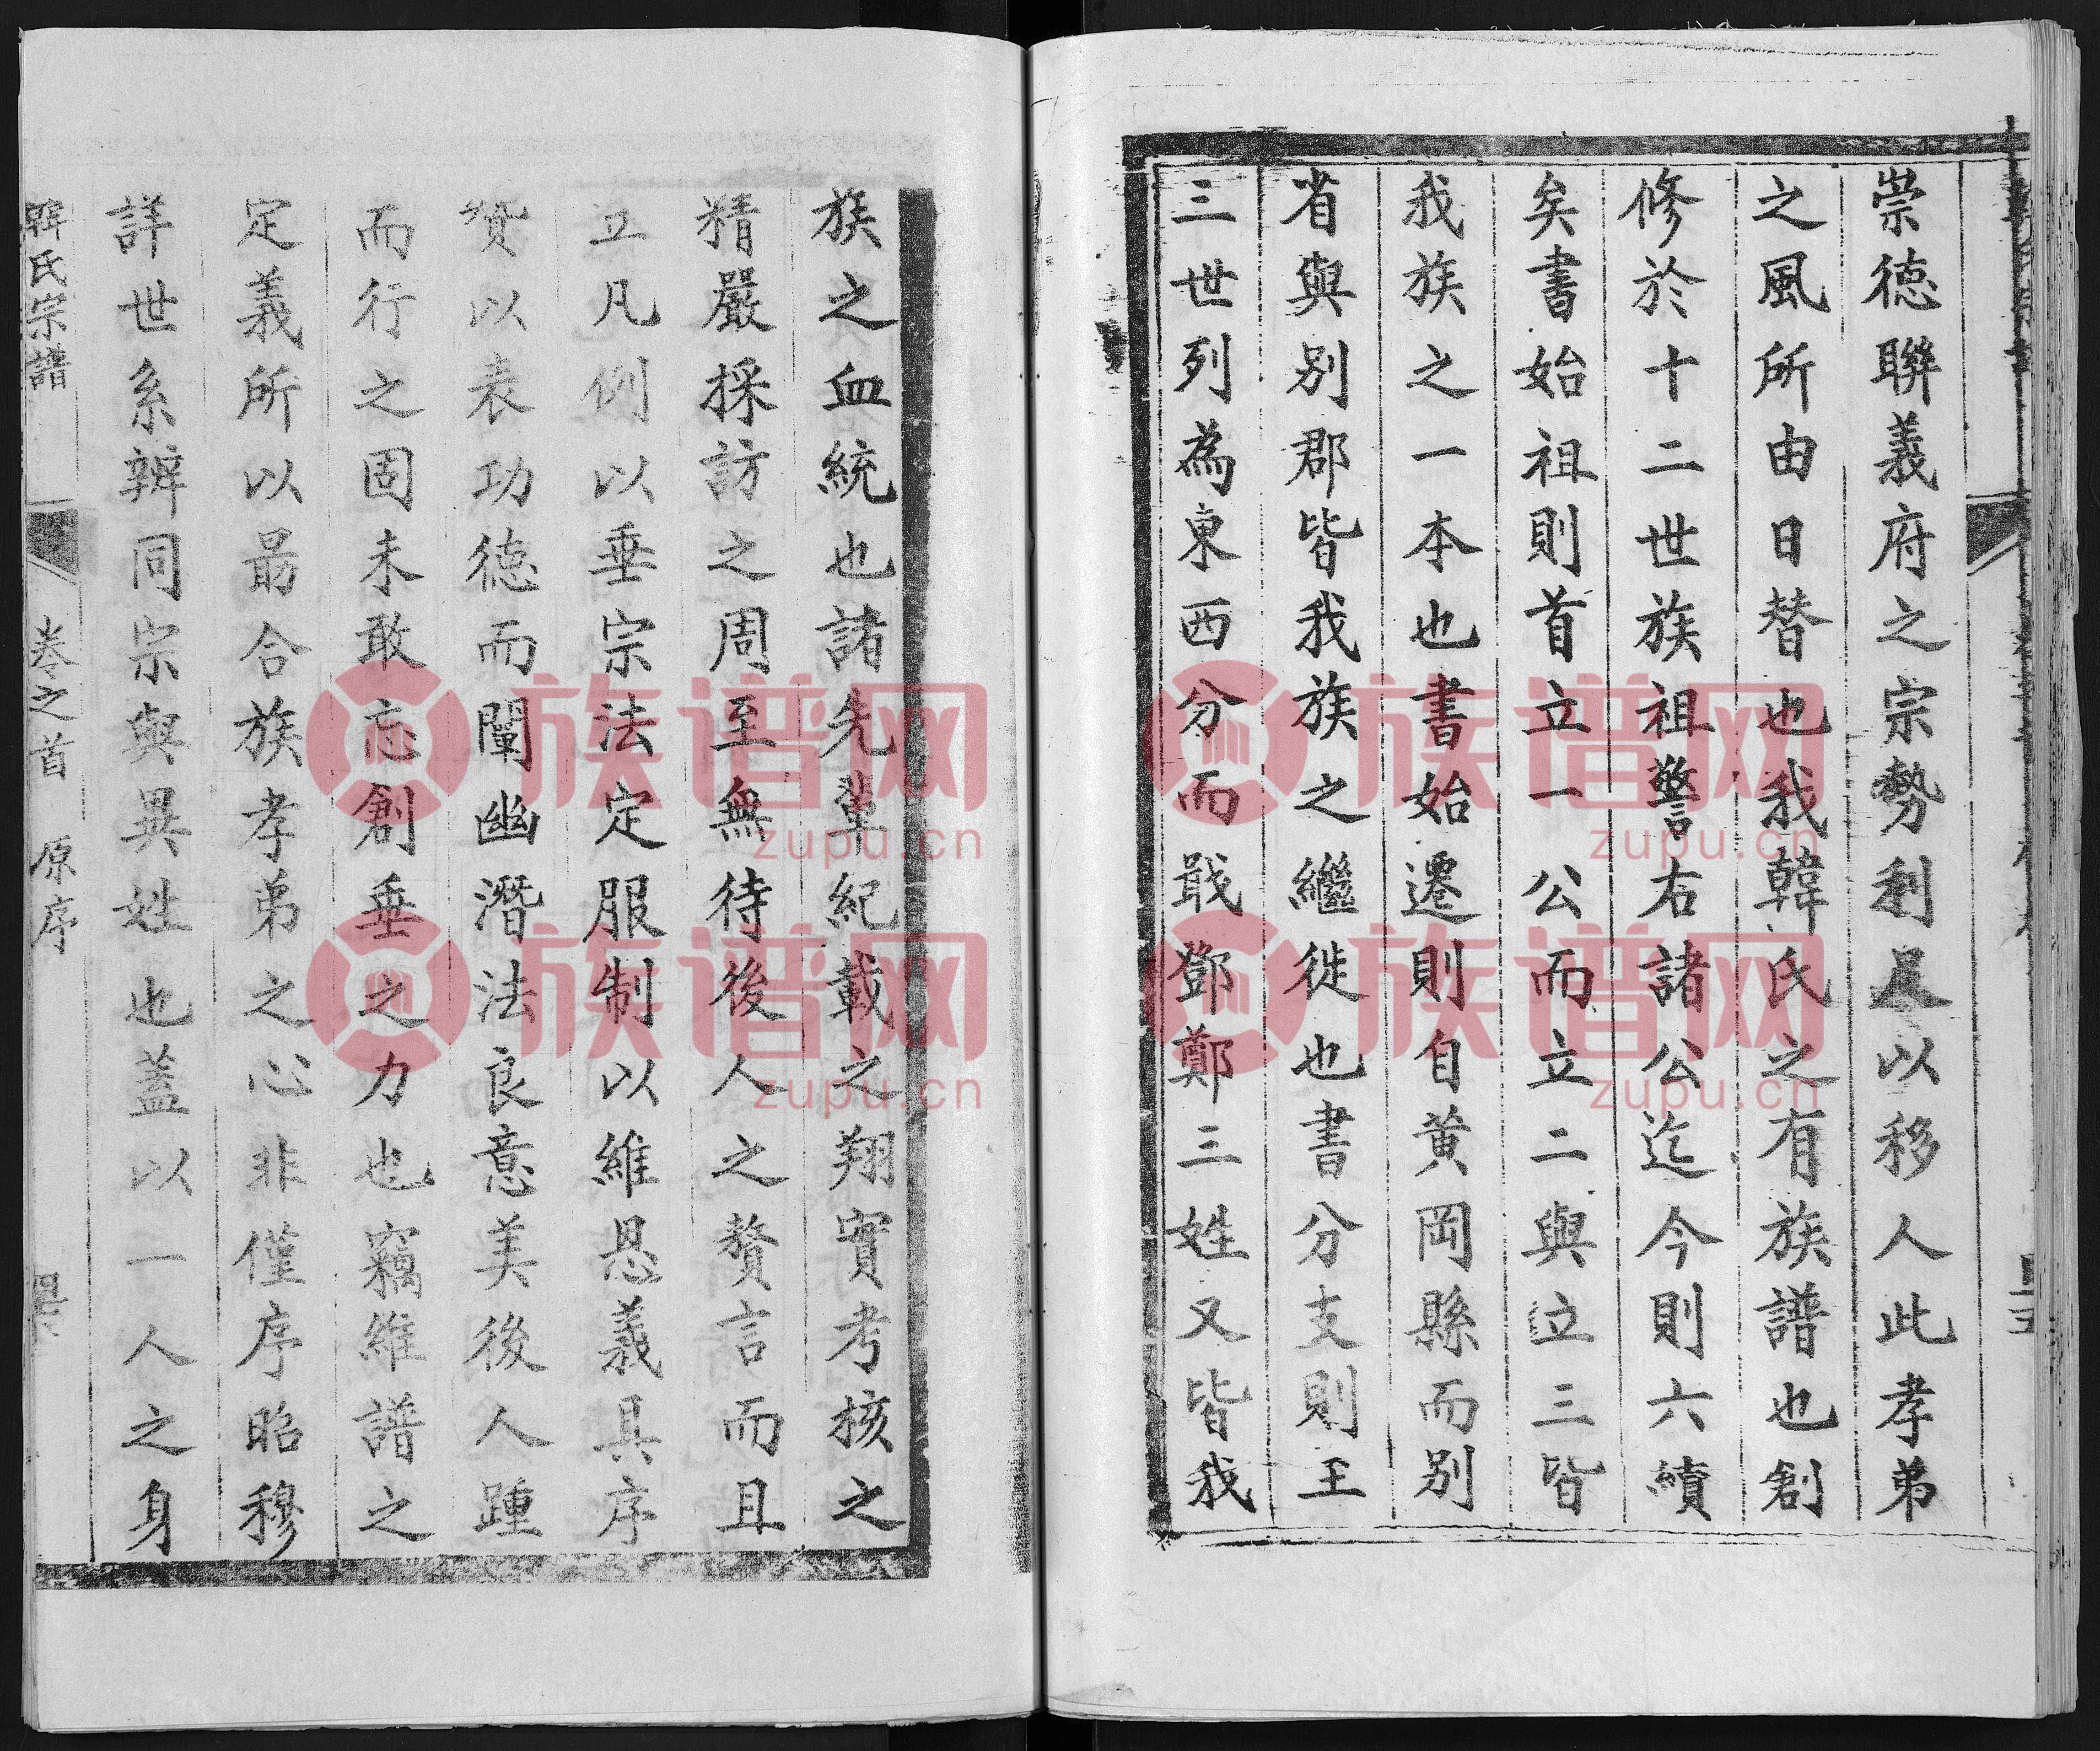 崇德聯義府之宗勢利足以移人此孝弟
之風所由日替也我韓氏之有族譜也創
修於十二世族祖警右諸公迄今則六續
矣書始祖則首立一公而立二與立三皆
我族之一本也書始遷則自黃岡縣而別
省與別郡皆我族之繼徙也書分支則王
三世列為東西分而戢鄧鄭三姓又皆我
族之血統也諸先輩紀載之翔實考核之
精嚴採訪之周至無待後人之贅言而且
立凡例以垂宗法定服制以維恩義具序
贊以表功德而闡幽潛法良意美後人踵
而行之固未敢忘創垂之力也竊維譜之
定義所以最合族孝弟之心非僅序昭穆
詳世系辨同宗與異姓也蓋以一人之身
韓氏宗譜
卷之首
原序
族谱网
zupu.cn
族谱网
zupu.cn
族谱网
zupu.cn
族谱网
zupu.cn